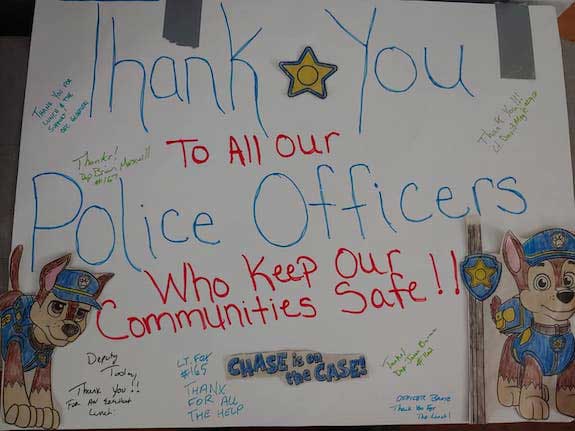 Thank You
To All Our
Police Officers
Who Keep Our
Communities Safe!!
Thank You for
Lunch & the
Support
Thanks!
Dep Brian Maxwill
#167
Thank You!!!
Lt. David
Deputy
Today
Thank You!!
For An Excellent
Lunch.
LT. Fox
#165
THANK
FOR ALL
THE HELP
CHASE is on
the CASE!
Thanks!
Dep
OFFICER
Thank You For
The Lunch!